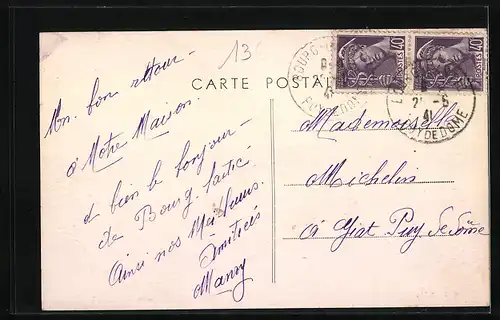 13
CARTE POSTA
POSTES 40
POSTES 40
BOURG
PUY DE DOME
41
PUY DE DOME
Un bon retour -
à Notre Maison.
et bien le bonjour -
de Bourg. Lastic
Ainsi nos Meilleurs
Amitiés
Mademoiselle
Michelin
à Giat Puy de Dôme